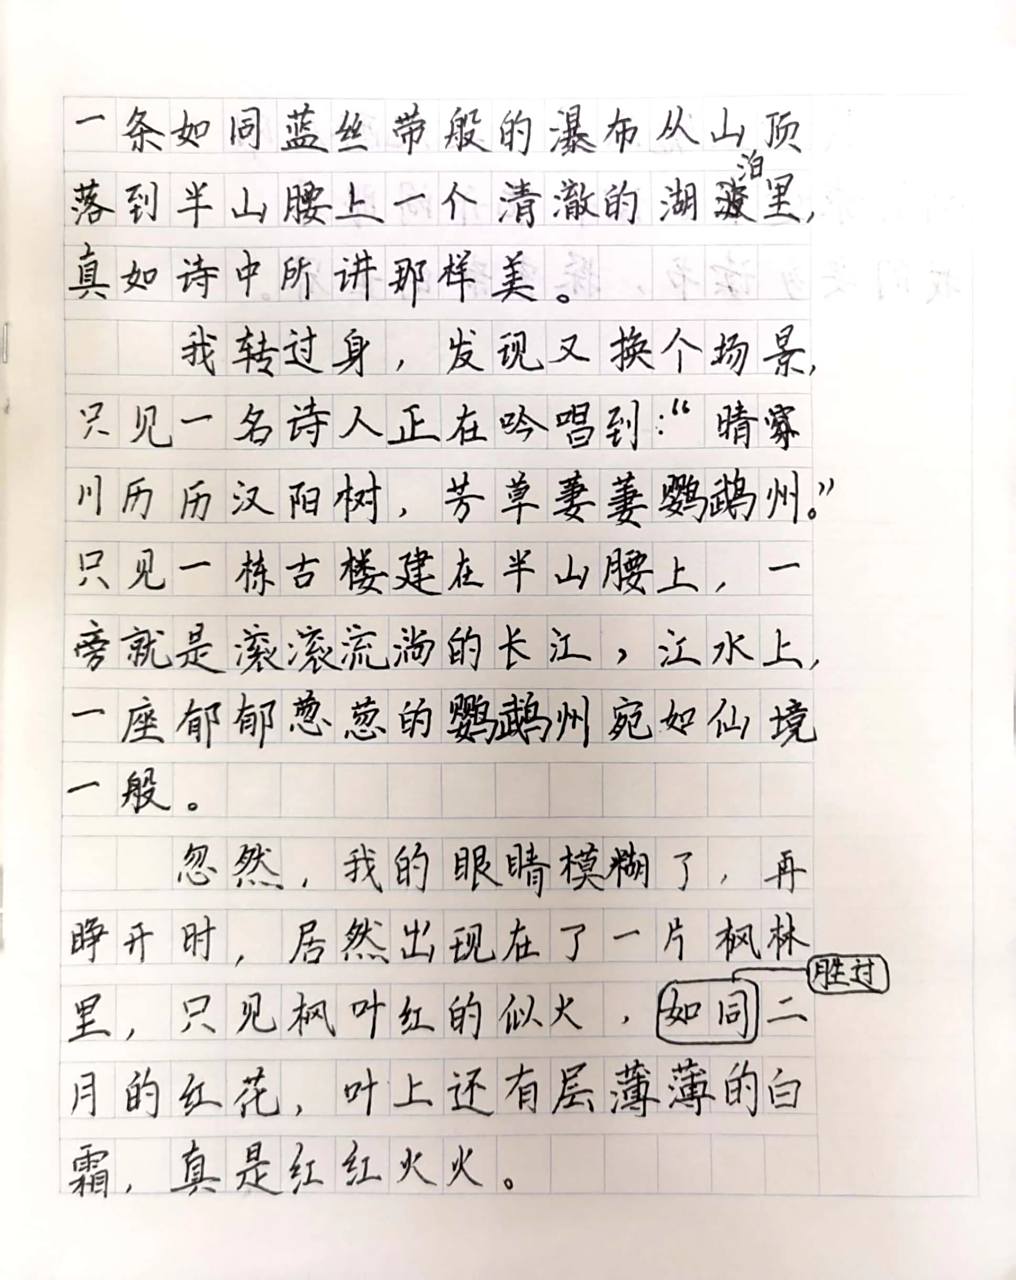 一条如同蓝丝带般的瀑布从山顶
落到半山腰上一个清澈的湖泊里,
真如诗中所讲那样美。
我转过身，发现又换个场景,
只见一名诗人正在吟唱到:“晴
川历历汉阳树，芳草萋萋鹦鹉州。”
只见一栋古楼建在半山腰上，一
旁就是滚滚流淌的长江，江水上,
一座郁郁葱葱的鹦鹉州宛如仙境
一般。
忽然，我的眼睛模糊了，再
睁开时，居然出现在了一片枫林
里，只见枫叶红的似火，如同二
胜过
月的红花，叶上还有层薄薄的白
霜，真是红红火火。